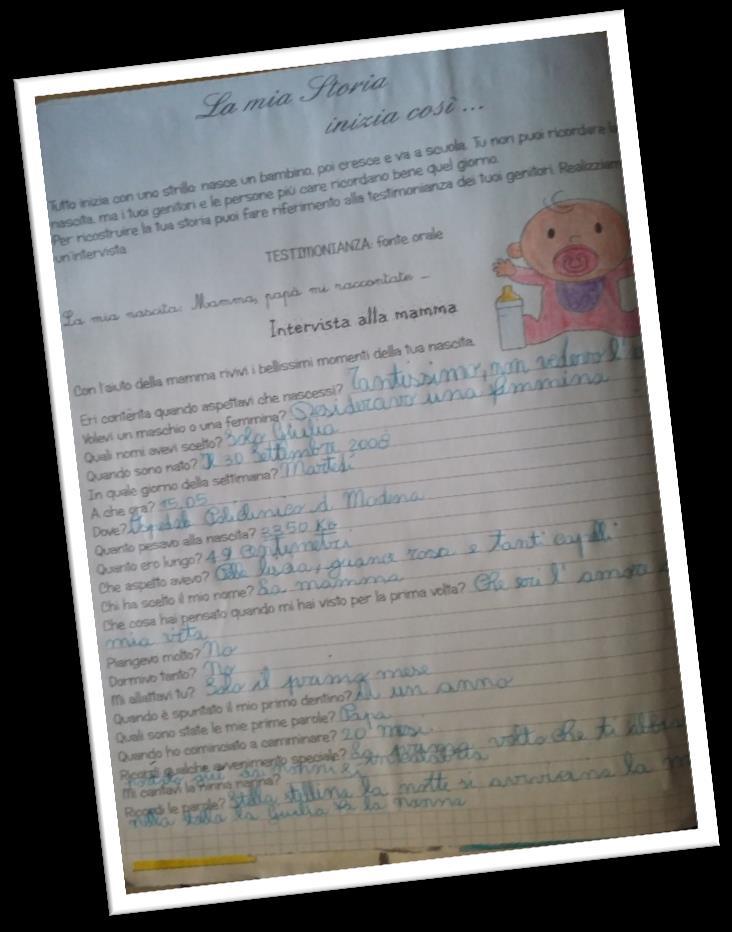 La mia Storia
inizia così ...
Tutto inizia con uno strillo: nasce un bambino, poi cresce e va a scuola. Tu non puoi ricordare la
nascita, ma i tuoi genitori e le persone più care ricordano bene quel giorno.
Per ricostruire la tua storia puoi fare riferimento alla testimonianza dei tuoi genitori. Realizziam
un'intervista
TESTIMONIANZA: fonte orale
La mia nascita: Mamma, papà mi raccontate ...
Intervista alla mamma
Con l'aiuto della mamma rivivi i bellissimi momenti della tua nascita.
Eri contenta quando aspettavi che nascessi? Tantissimo, non vedevo l'
Volevi un maschio o una femmina? Desideravo una femmina
Quali nomi avevi scelto? Solo Giulia
Quando sono nato? Il 30 Settembre 2008
In quale giorno della settimana? Martedì
A che ora? 15.05
Dove? Ospedale Policlinico d Modena
Quanto pesavo alla nascita? 3350 Kg
Quanto ero lungo? 49 centimetri
Che aspetto avevo? liscia, guance rosa e tanti capelli
Chi ha scelto il mio nome? La mamma
Che cosa hai pensato quando mi hai visto per la prima volta? Che eri l'amore
mia vita
Piangevo molto? No
Dormivo tanto? No
Mi allattavi tu? Solo il primo mese
Quando è spuntato il mio primo dentino? A un anno
Quali sono state le mie prime parole? Papa
Quando ho cominciato a camminare? 20 mesi
Ricordi qualche avvenimento speciale? La prima volta che ti
Mi cantavi la ninna nanna?
Ricordi le parole? Stella stellina la notte si avvicina la
nella stalla la Giulia fa la nanna